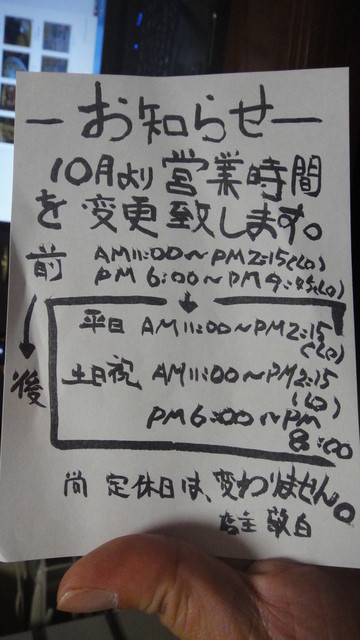 ーお知らせー
10月より営業時間
を変更致します。
前 AM11:00～PM2:15(LO)
PM 6:00～PM9:45(LO)
後
平日 AM11:00～PM2:15
(LO)
土日祝 AM11:00～PM2:15
(LO)
PM6:00～PM
8:00
尚 定休日は、変わりません。
店主 敬白